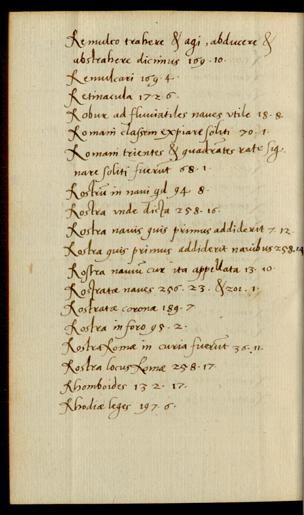 Remulco trahere & agi, abducere &
abstrahere dicimus 169. 10.
Remulcari 169. 4.
Retinacula 172 6.
Robur ad fluviatiles naves utile 18. 8.
Romani classem expiare soliti 70. 1.
Romani trientes & quadrātes rate sig-
nare soliti fuerūt 68. 1.
Rostrū in navi qd 94. 8.
Rostra unde dicta 258. 16.
Rostra navis quis primus addiderit 7. 12.
Rostra quis primus addiderit navibus 258. 14
Rostra naviū cur ita appellata 13. 10.
Rostratæ naves 256. 23. & 201. 1.
Rostratæ coronæ 189. 7
Rostra in foro 95. 2.
Rostra Romæ in curia fuerūt 36. 11.
Rostra locus Romæ 258. 17.
Rhomboides 13 2. 17.
Rhodiæ leges 197. 6.